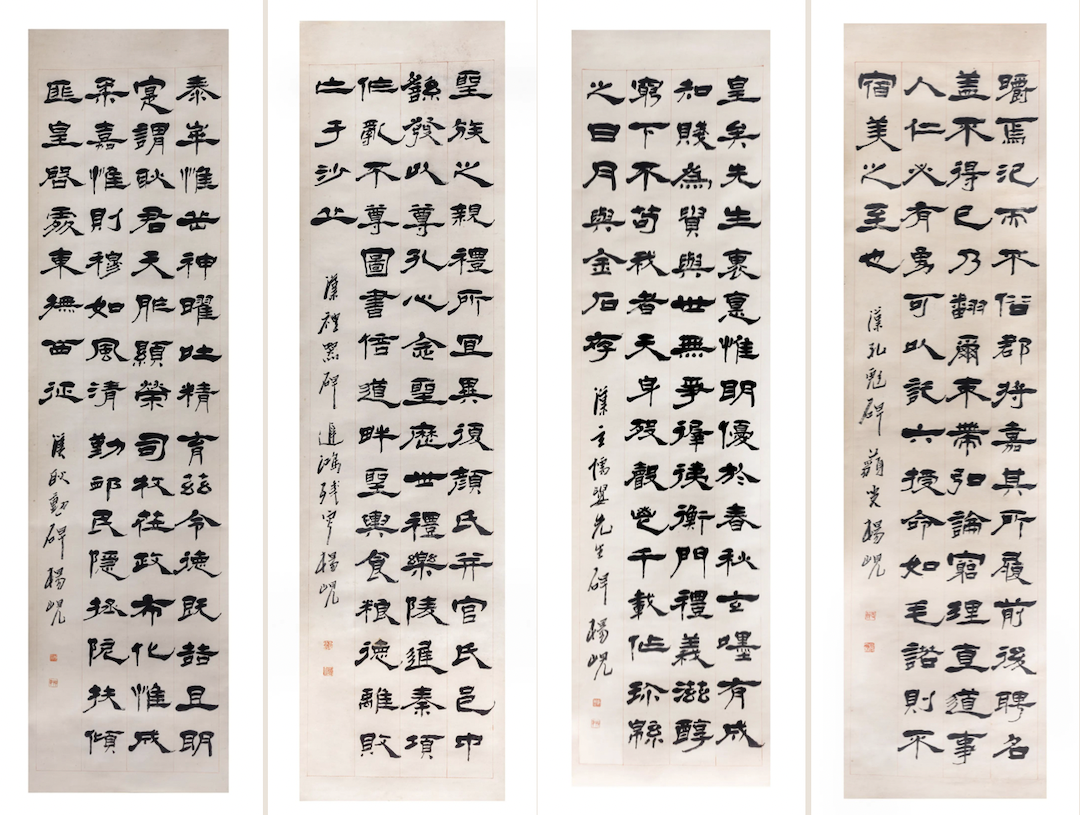 皭焉汜而不俗郡将嘉其所履前後聘名
盖不得已乃翻爾束帶弘論窮理直道事
人仁必有勇可以託六授命如毛諾則不
宿美之至也
漢孔彪碑 藐叟楊峴
皇矣先生裹悳惟朙優於春秋玄嘿有成
知賤為貴與世無爭徲徚衡門禮義滋醇
窮下不苟我者天身歿聲邕千載作珎緜
之日月與金石存
漢玄儒婁先生碑 楊峴
聖族之親禮所宜異復顏氏并官氏邑中
繇發以尊孔心念聖歷世禮樂陵遲秦項
作亂不尊圖書倍道畔聖輿食粮德離敗
亡于沙丘
漢禮器碑 遲鴻殘甲 楊峴
泰華惟岳神曜吐精育茲令德既喆且明
寔謂耿君天胙顯榮司牧莅政布化惟成
柔嘉惟則穆如風清勤恤民隱拯阨扶傾
匪皇啓處東撫西征
漢耿勳碑 楊峴